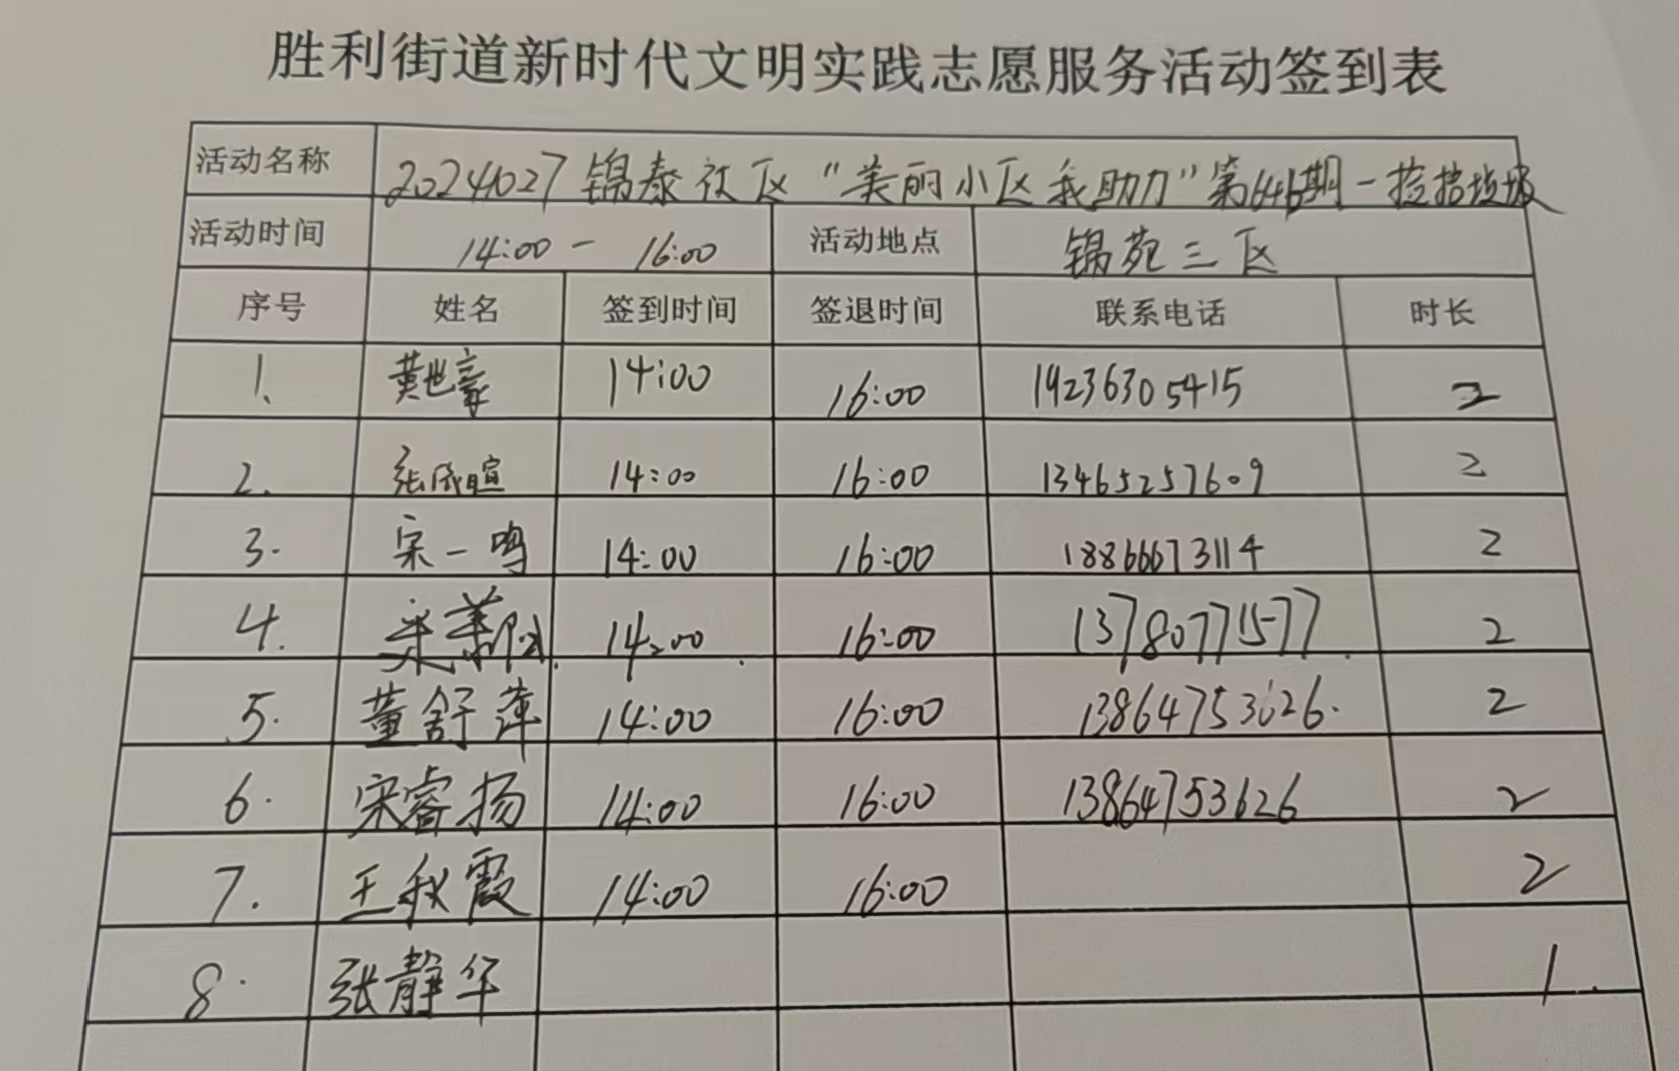 胜利街道新时代文明实践志愿服务活动签到表
活动名称 20241027锦泰社区“美丽小区我助力”第646期-捡拾垃圾
活动时间 14:00 - 16:00 活动地点 锦苑三区
序号 姓名 签到时间 签退时间 联系电话 时长
1、 黄世豪 14:00 16:00 19236305415 2
2. 张宸暄 14:00 16:00 13465257609 2
3. 宋一鸣 14:00 16:00 18866673114 2
4. 14:00 16:00 13780771577 2
5. 董舒萍 14:00 16:00 13864753626. 2
6. 宋睿扬 14:00 16:00 13864753626 2
7. 王秋霞 14:00 16:00 2
8. 张静华 1.